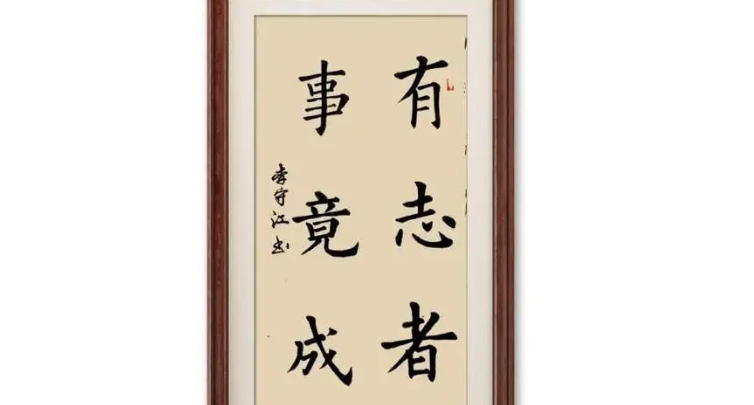 有志者
事竟成
李守江书